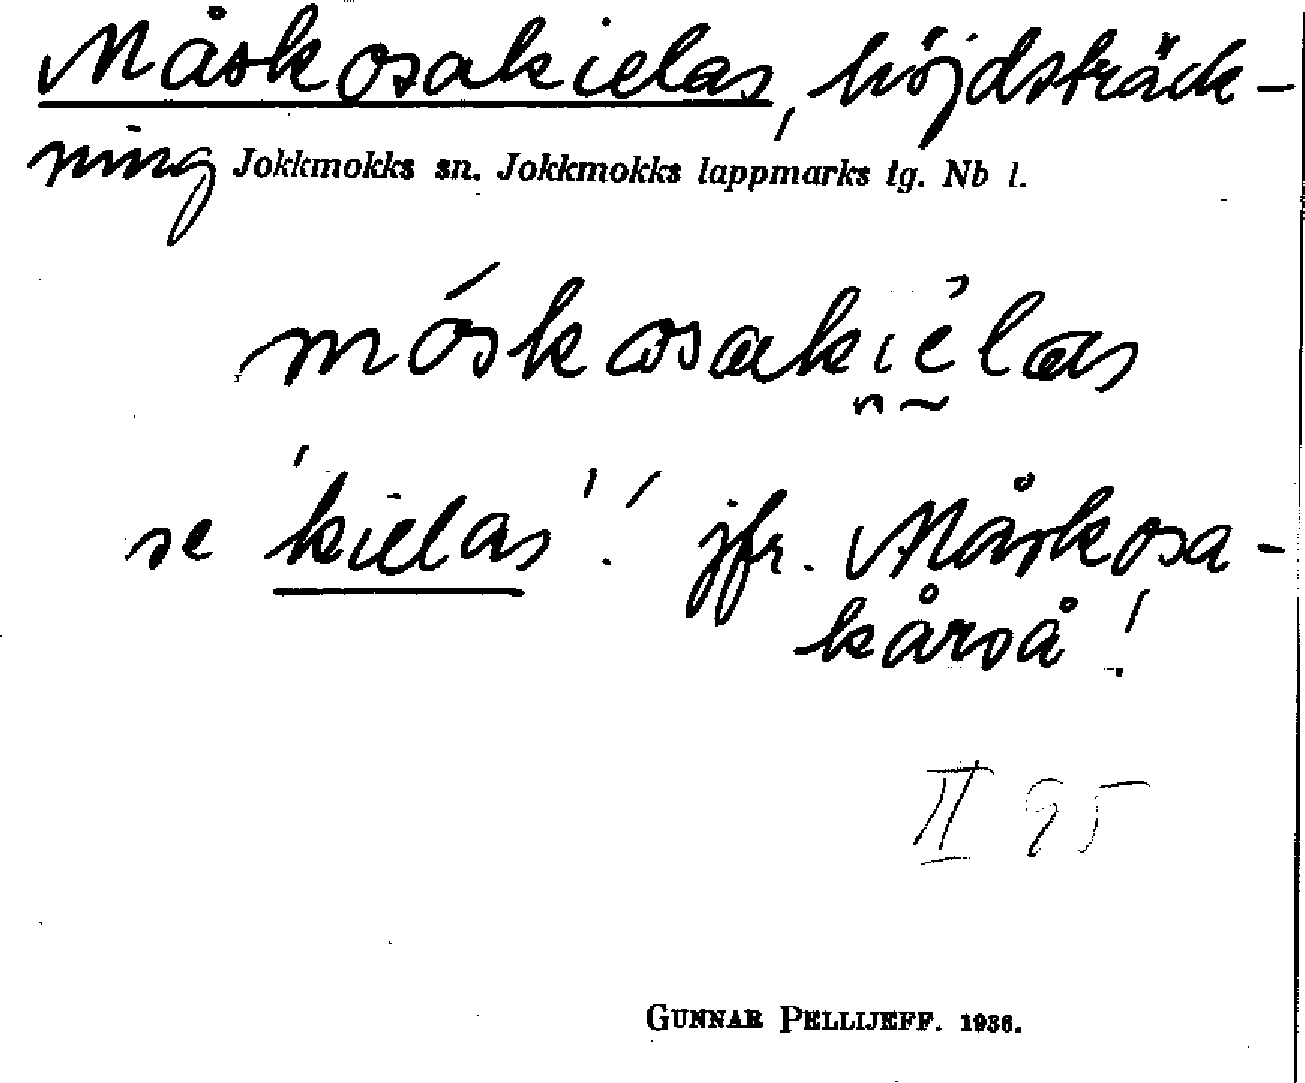 Måskosakielas, höjdsträck-
ning Jokkmokks sn. Jokkmokks lappmarks tg. Nb l.
móskosakiẻlas
se 'kielas'! jfr. Måskosa-
kårså!
II 95
GUNNAR PELLIJEFF. 1936.